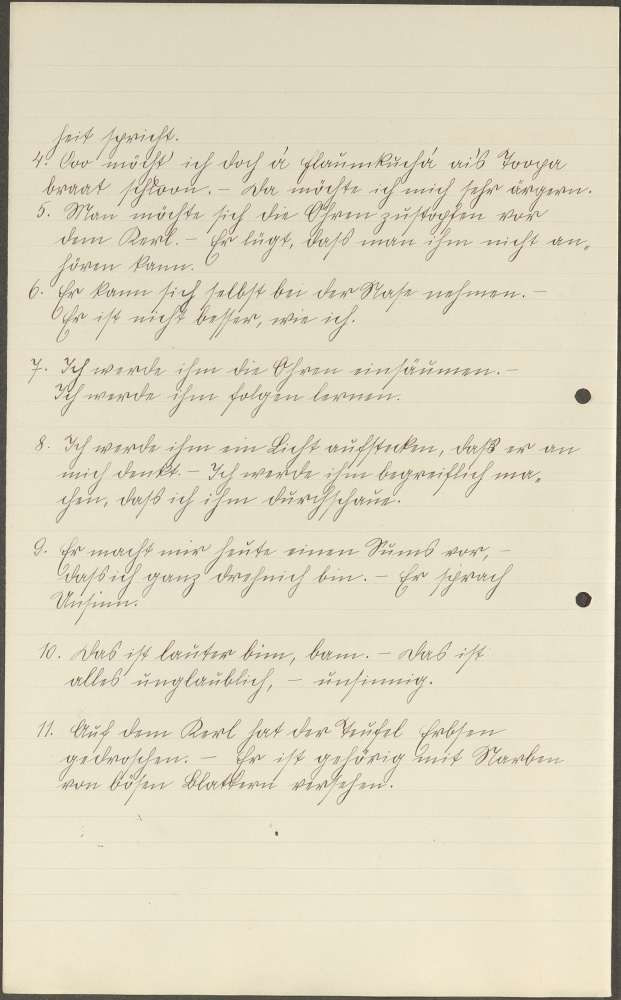 heit spricht.
4. Doo möcht' ich doch á Flaumkuchá aus Toopa
braat schloon. – Da möchte ich mich sehr ärgern.
5. Man möchte sich die Ohren zustopfen vor
dem Kerl. – Er lügt, daß man ihm nicht an-
hören kann.
6. Er kann sich selbst bei der Nase nehmen. –
Er ist nicht besser, wie ich.
7. Ich werde ihm die Ohren einsäumen. –
Ich werde ihm folgen lernen.
8. Ich werde ihm ein Licht aufstecken, daß er an
mich denkt. – Ich werde ihm begreiflich ma-
chen, daß ich ihm durchschaue.
9. Er macht mir heute einen Sums vor, –
daß ich ganz drehnich bin. – Er sprach
Unsinn.
10. Das ist lauter bim, bam. – Das ist
alles unglaublich, – unsinnig.
11. Auf dem Kerl hat der Teufel Erbsen
gedroschen. – Er ist gehörig mit Narben
von bösen Blattern versehen.